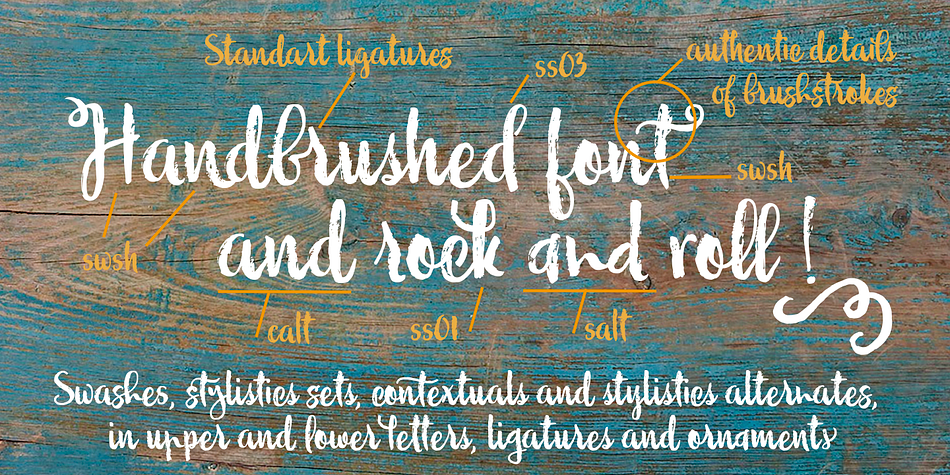 Standart ligatures
ss03
authentic details
of brushstrokes
Handbrushed font
swsh
swsh
and rock and roll!
calt
ss01
salt
Swashes, stylistics sets, contextuals and stylistics alternates,
in upper and lower letters, ligatures and ornaments